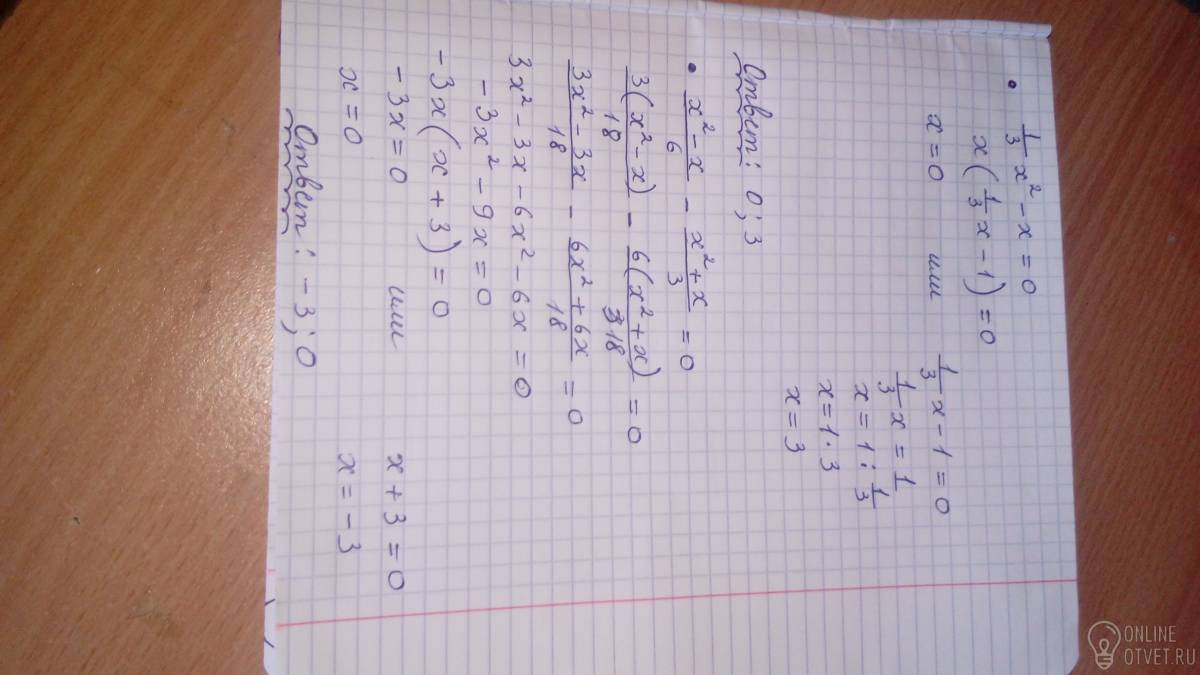 • 1/3 x² - x = 0
x(1/3 x - 1) = 0
x = 0 или 1/3 x - 1 = 0
1/3 x = 1
x = 1 : 1/3
x = 1 · 3
x = 3
Ответ: 0; 3
• (x² - x)/6 - (x² + x)/3 = 0
3(x² - x)/18 - 6(x² + x)/18 = 0
(3x² - 3x)/18 - (6x² + 6x)/18 = 0
3x² - 3x - 6x² - 6x = 0
- 3x² - 9x = 0
- 3x(x + 3) = 0
- 3x = 0 или x + 3 = 0
x = 0 x = - 3
Ответ: -3; 0
ONLINE
OTVET.RU